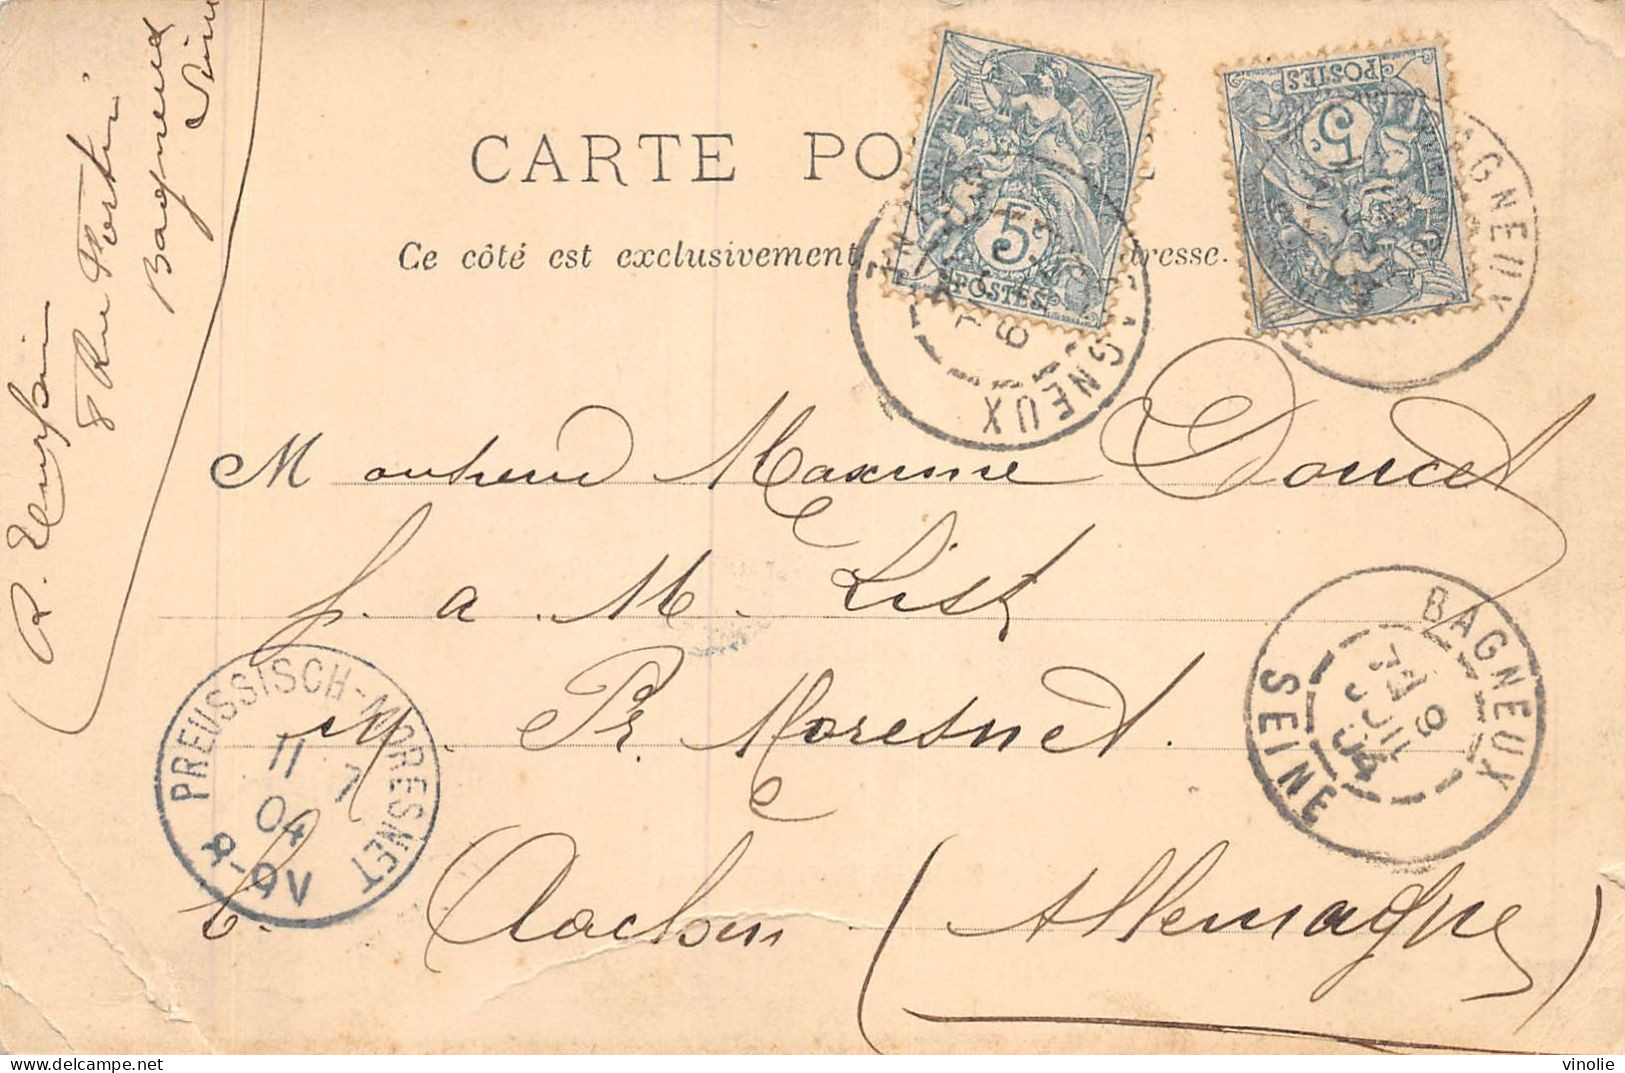 CARTE PO
Ce côté est exclusivement
dresse.
5
POSTES
5
POSTES
BAGNEUX
AGNEUX
R.
8 Rue Fortin
Bagneux
Seine
Monsieur Maxime Doucet
p. a M. List
Pr. Moresnet.
b. Aachen (Allemagne)
PREUSSISCH-MORESNET
11 7
04
8-9V
BAGNEUX
7E 9
JUIL
04
SEINE
vinolie